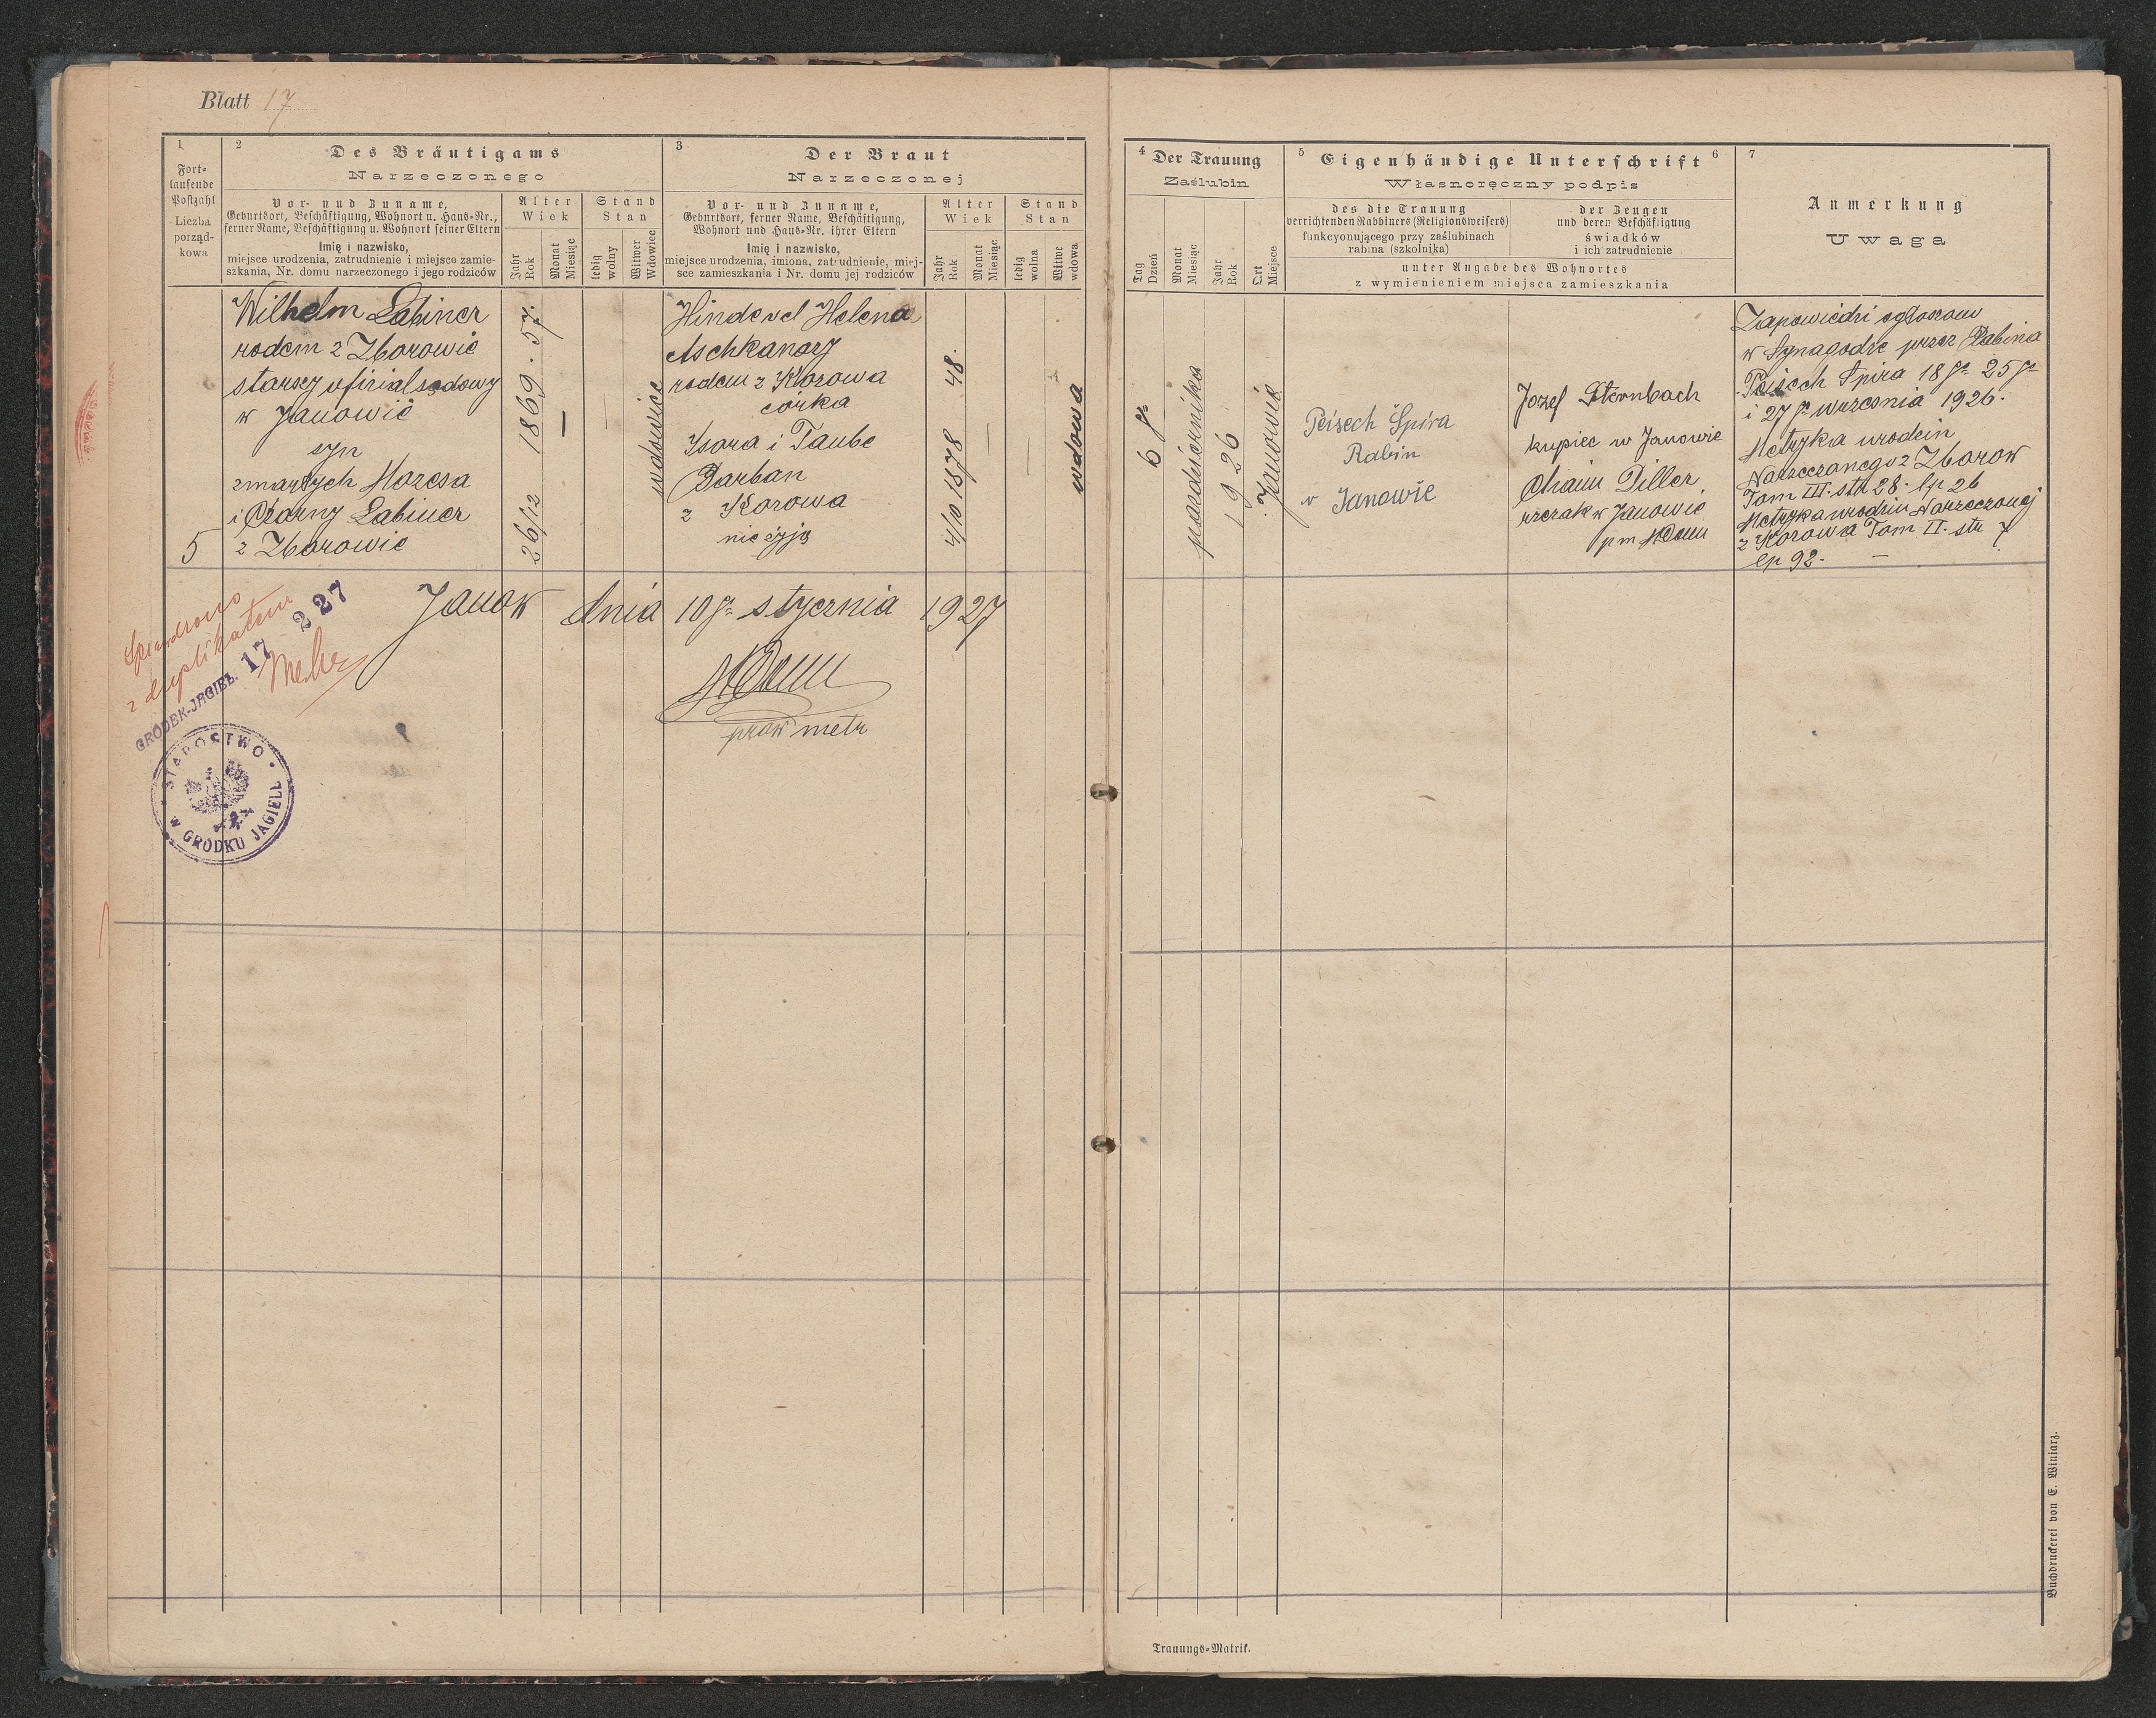 Blatt 17
1
Fort-
laufende
Postzahl
Liczba
porząd-
kowa
2
Des Bräutigams
Narzeczonego
Vor- und Zuname,
Geburtsort, Beschäftigung, Wohnort u. Haus-Nr.,
ferner Name, Beschäftigung u. Wohnort seiner Eltern
Imię i nazwisko,
miejsce urodzenia, zatrudnienie i miejsce zamie-
szkania, Nr. domu narzeczonego i jego rodziców
Alter
Wiek
Jahr
Rok
Monat
Miesiąc
Stand
Stan
ledig
wolny
Witwer
Wdowiec
3
Der Braut
Narzeczonej
Vor- und Zuname,
Geburtsort, ferner Name, Beschäftigung,
Wohnort und Haus-Nr. ihrer Eltern
Imię i nazwisko,
miejsce urodzenia, imiona, zatrudnienie, miej-
sce zamieszkania i Nr. domu jej rodziców
Alter
Wiek
Jahr
Rok
Monat
Miesiąc
Stand
Stan
ledig
wolna
Witwe
wdowa
4
Der Trauung
Zaślubin
Tag
Dzień
Monat
Miesiąc
Jahr
Rok
Ort
Miejsce
5
Eigenhändige Unterschrift
6
Własnoręczny podpis
des die Trauung
verrichtenden Rabbiners (Religionsweisers)
funkcyonującego przy zaślubinach
rabina (szkolnika)
der Zeugen
und deren Beschäftigung
świadków
i ich zatrudnienie
unter Angabe des Wohnortes
z wymienieniem miejsca zamieszkania
7
Anmerkung
Uwaga
5
Wilhelm Labiner
rodem z Zborowie
starszy oficial sądowy
w Janowie
syn
zmarłych Mozesa
i Czarny Labiner
z Zborowie
26/12 1869. 57.
—
wdowiec
Hinde vel Helena
Aschkanazy
rodem z Kozowa
córka
Izora i Taube
Barban
z Kozowa
nie żyją
4/10 1878 48.
wdowa
6 go
października
1926
Janowie
Peisech Spira
Rabin
w Janowie
Jozef Sternbach
kupiec w Janowie
Chaim Diller
rzezak w Janowie
Zapowiedzi ogłoszono
w Synagodze przez Rabina
Peisech Spira 18 go 25 go
i 27 go września 1926.
Metryka urodzin
Narzeczonego z Zborow
Tom III. str 28. lp 26
Metryka urodzin Narzeczonej
z Kozowa Tom II. str 7
lp 92. —
Janow dnia 10 go stycznia 1927
prow metr
Sprawdzono
z duplikatem
GRÓDEK-JAGIEŁ. 17 2 27
STAROSTWO
W GRÓDKU JAGIELL
Trauungs-Matrik.
Buchdruckerei von E. Winiarz.